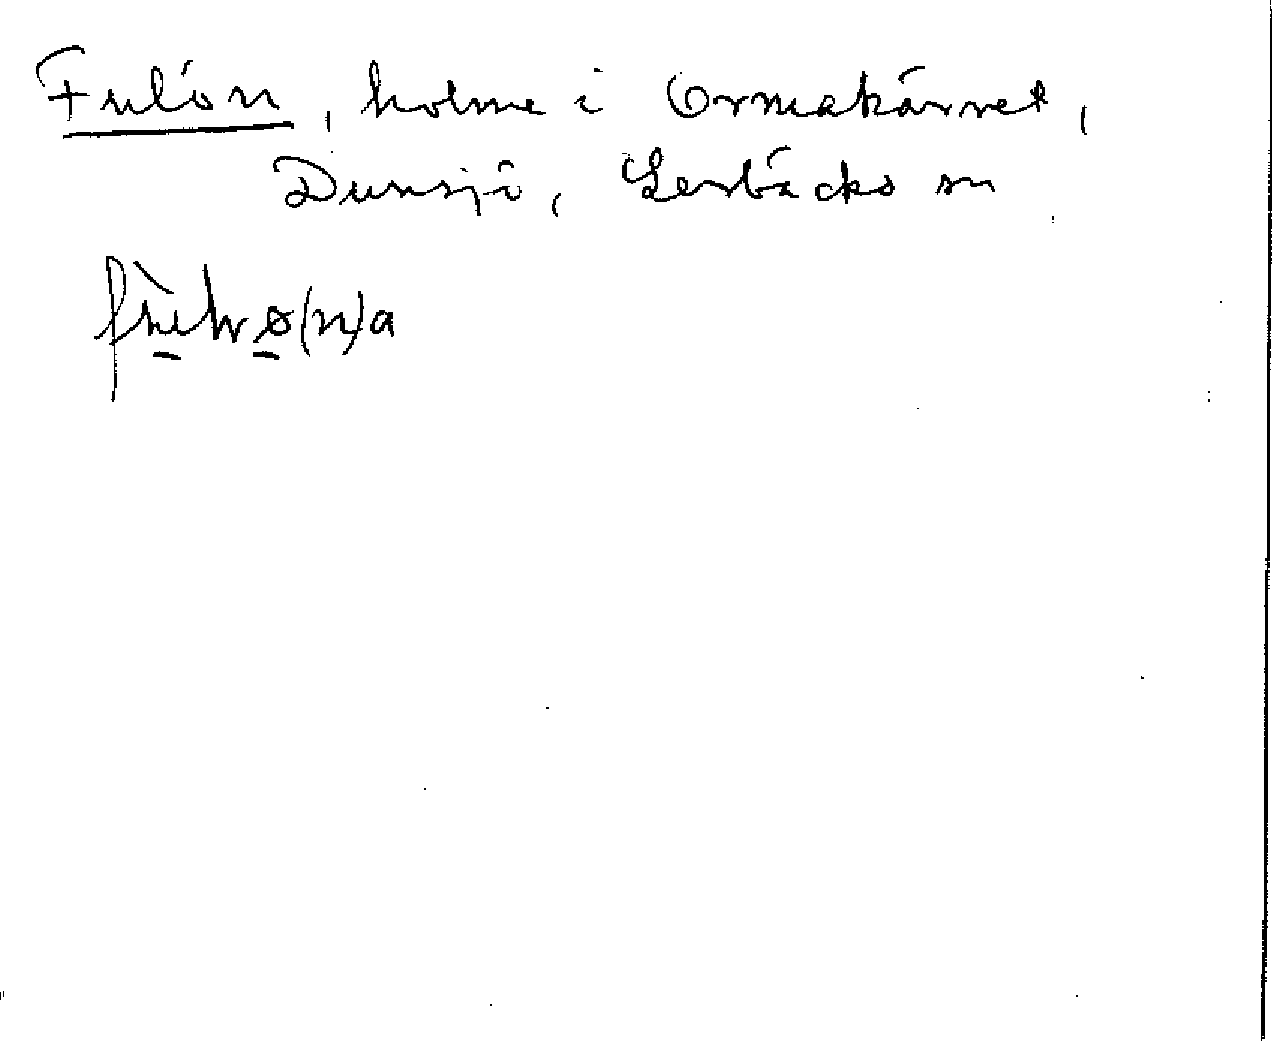 Fulön, holme i Ormakärret,
Dunsjö, Lerbäcks sn